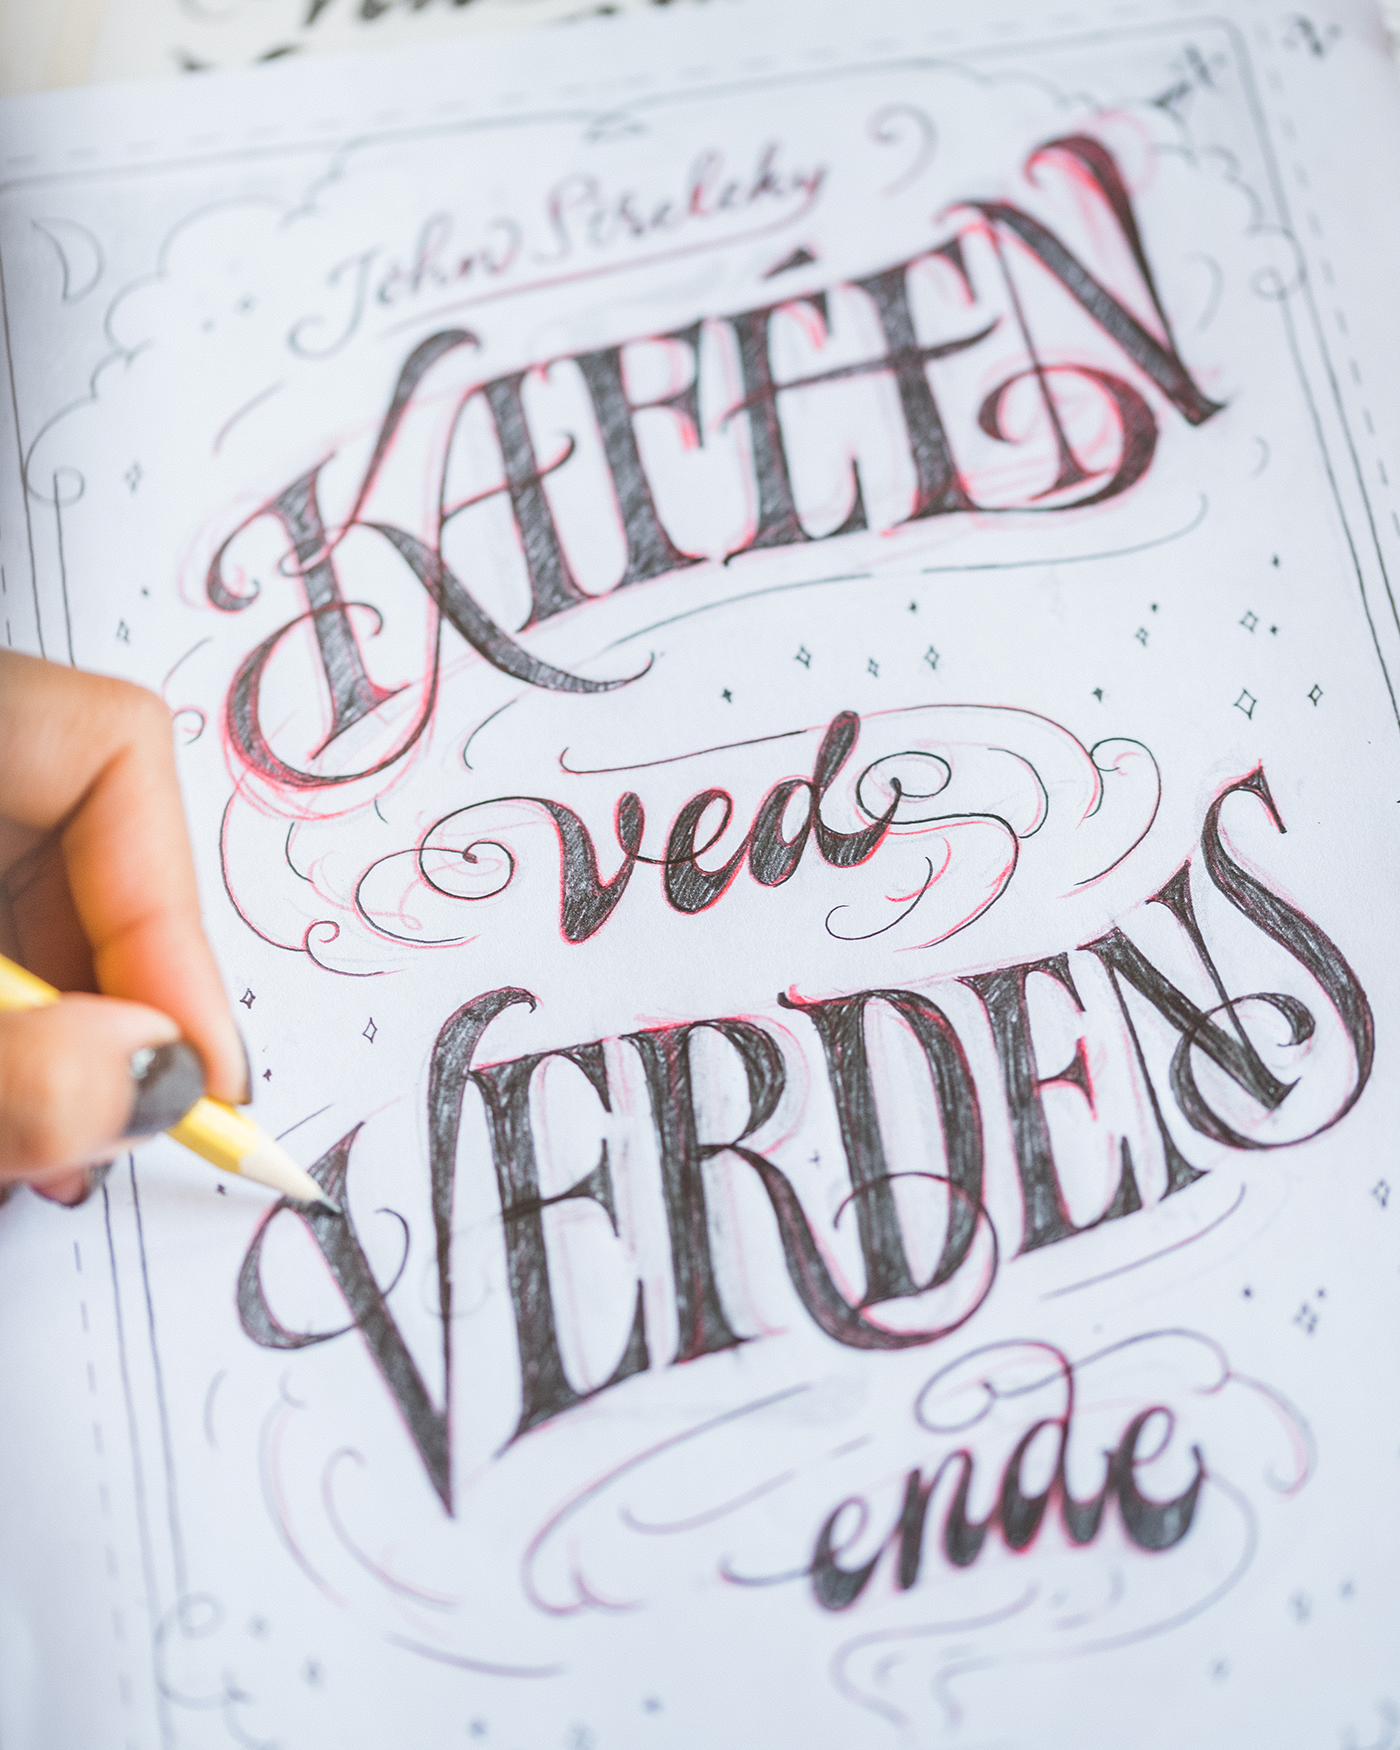 John Strelecky
KAFÉEN
ved
VERDENS
ende